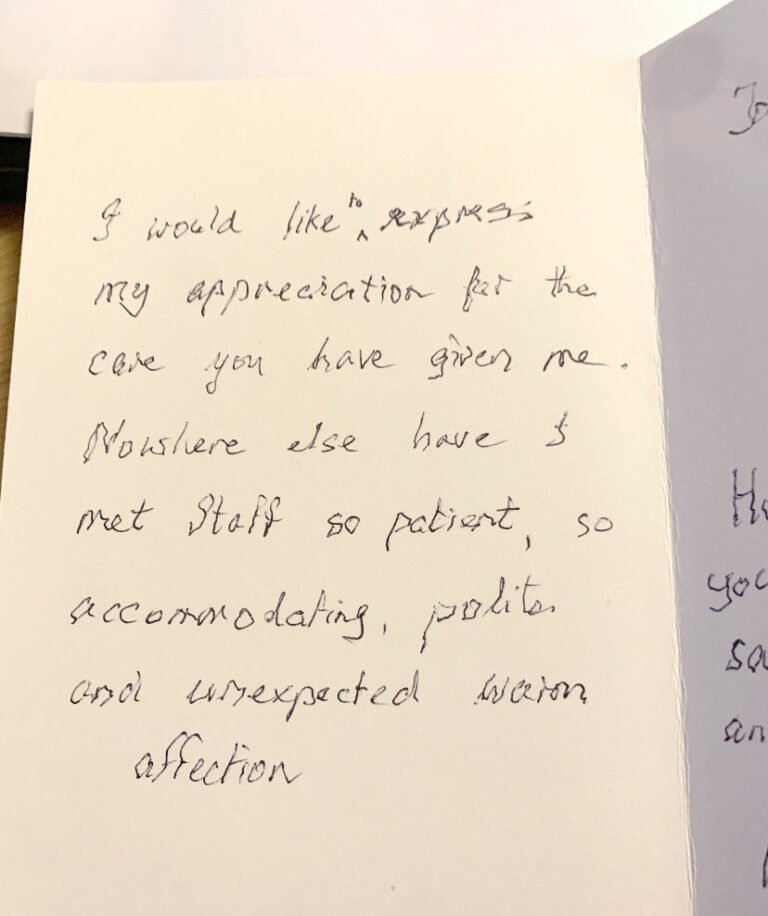 I would like to express
my appreciation for the
care you have given me.
Nowhere else have I
met Staff so patient, so
accommodating, polite
and unexpected warm
affection
you